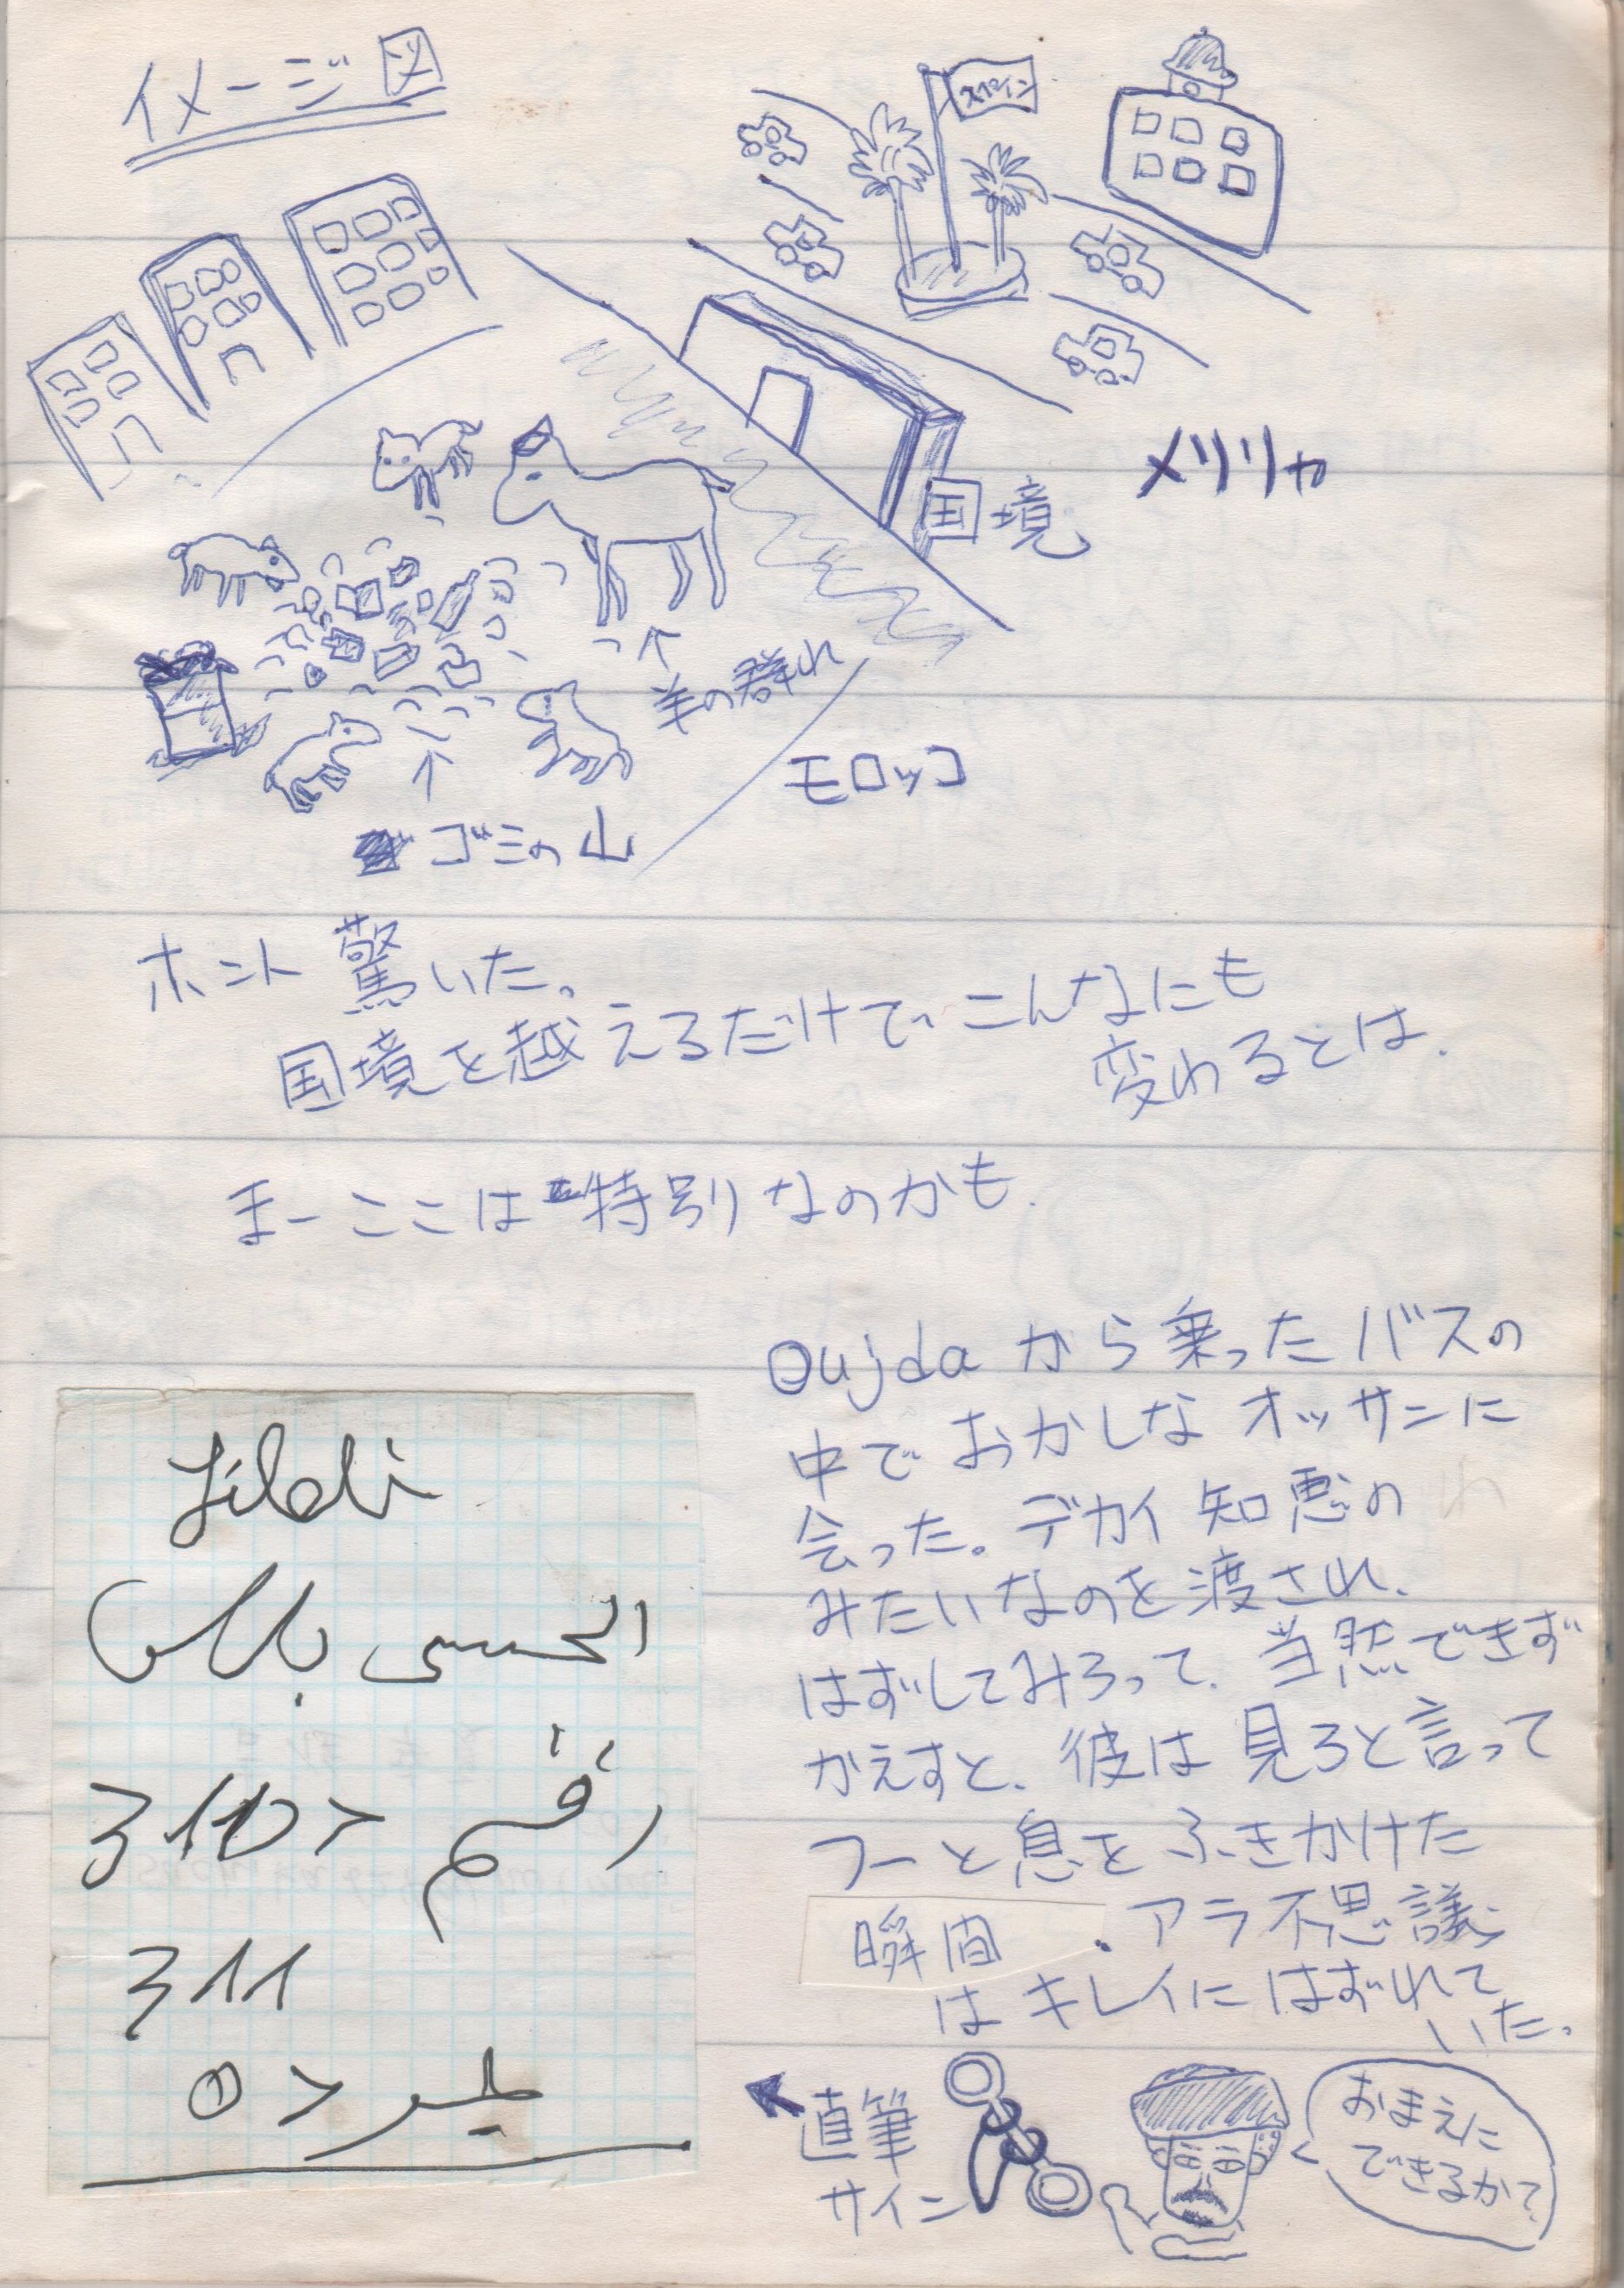 イメージ図
スペイン
国境
メリリャ
羊の群れ
モロッコ
ゴミの山
ホント驚いた。
国境を越えるだけで、こんなにも
変わるとは.
まーここは特別なのかも.
Oujda から乗ったバスの
中でおかしなオッサンに
会った。デカイ知恵の
みたいなのを渡され、
はずしてみろって、当然できず
かえすと、彼は見ろと言って
フーと息をふきかけた
瞬間、アラ不思議
はキレイにはずれて
いた。
直筆
サイン
おまえに
できるか?
رقم
311